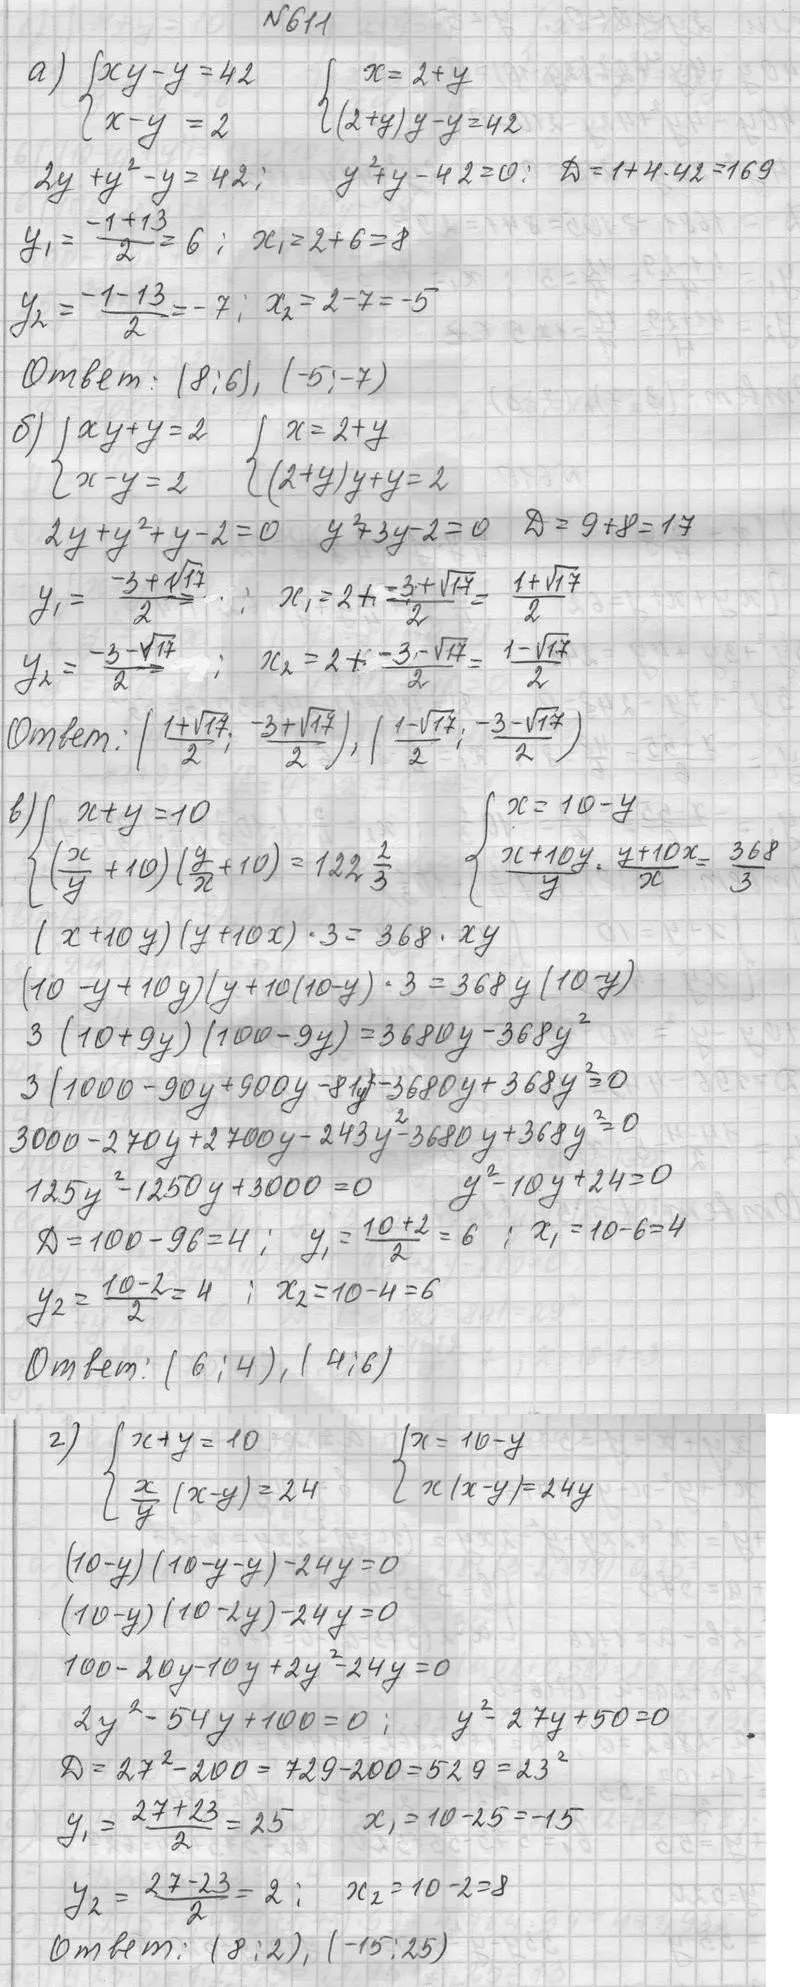 №611
а) { xy-y=42    { x=2+y
{ x-y=2    { (2+y)y-y=42
2y+y²-y=42;    y²+y-42=0;  D=1+4·42=169
y₁=(-1+13)/2=6;  x₁=2+6=8
y₂=(-1-13)/2=-7;  x₂=2-7=-5
Ответ: (8;6), (-5;-7)
б) { xy+y=2    { x=2+y
{ x-y=2    { (2+y)y+y=2
2y+y²+y-2=0    y²+3y-2=0  D=9+8=17
y₁=(-3+√17)/2;  x₁=2+(-3+√17)/2=(1+√17)/2
y₂=(-3-√17)/2;  x₂=2+(-3-√17)/2=(1-√17)/2
Ответ: ((1+√17)/2; (-3+√17)/2), ((1-√17)/2; (-3-√17)/2)
в) { x+y=10    { x=10-y
{ (x/y+10)(y/x+10)=122 2/3    { (x+10y)/y·(y+10x)/x=368/3
(x+10y)(y+10x)·3=368·xy
(10-y+10y)(y+10(10-y)·3=368y(10-y)
3(10+9y)(100-9y)=3680y-368y²
3(1000-90y+900y-81y²-3680y+368y²=0
3000-270y+2700y-243y²-3680y+368y²=0
125y²-1250y+3000=0    y²-10y+24=0
D=100-96=4;  y₁=(10+2)/2=6;  x₁=10-6=4
y₂=(10-2)/2=4;  x₂=10-4=6
Ответ: (6;4), (4;6)
г) { x+y=10    { x=10-y
{ x/y(x-y)=24    { x(x-y)=24y
(10-y)(10-y-y)-24y=0
(10-y)(10-2y)-24y=0
100-20y-10y+2y²-24y=0
2y²-54y+100=0;    y²-27y+50=0
D=27²-200=729-200=529=23²
y₁=(27+23)/2=25    x₁=10-25=-15
y₂=(27-23)/2=2;  x₂=10-2=8
Ответ: (8;2), (-15;25)